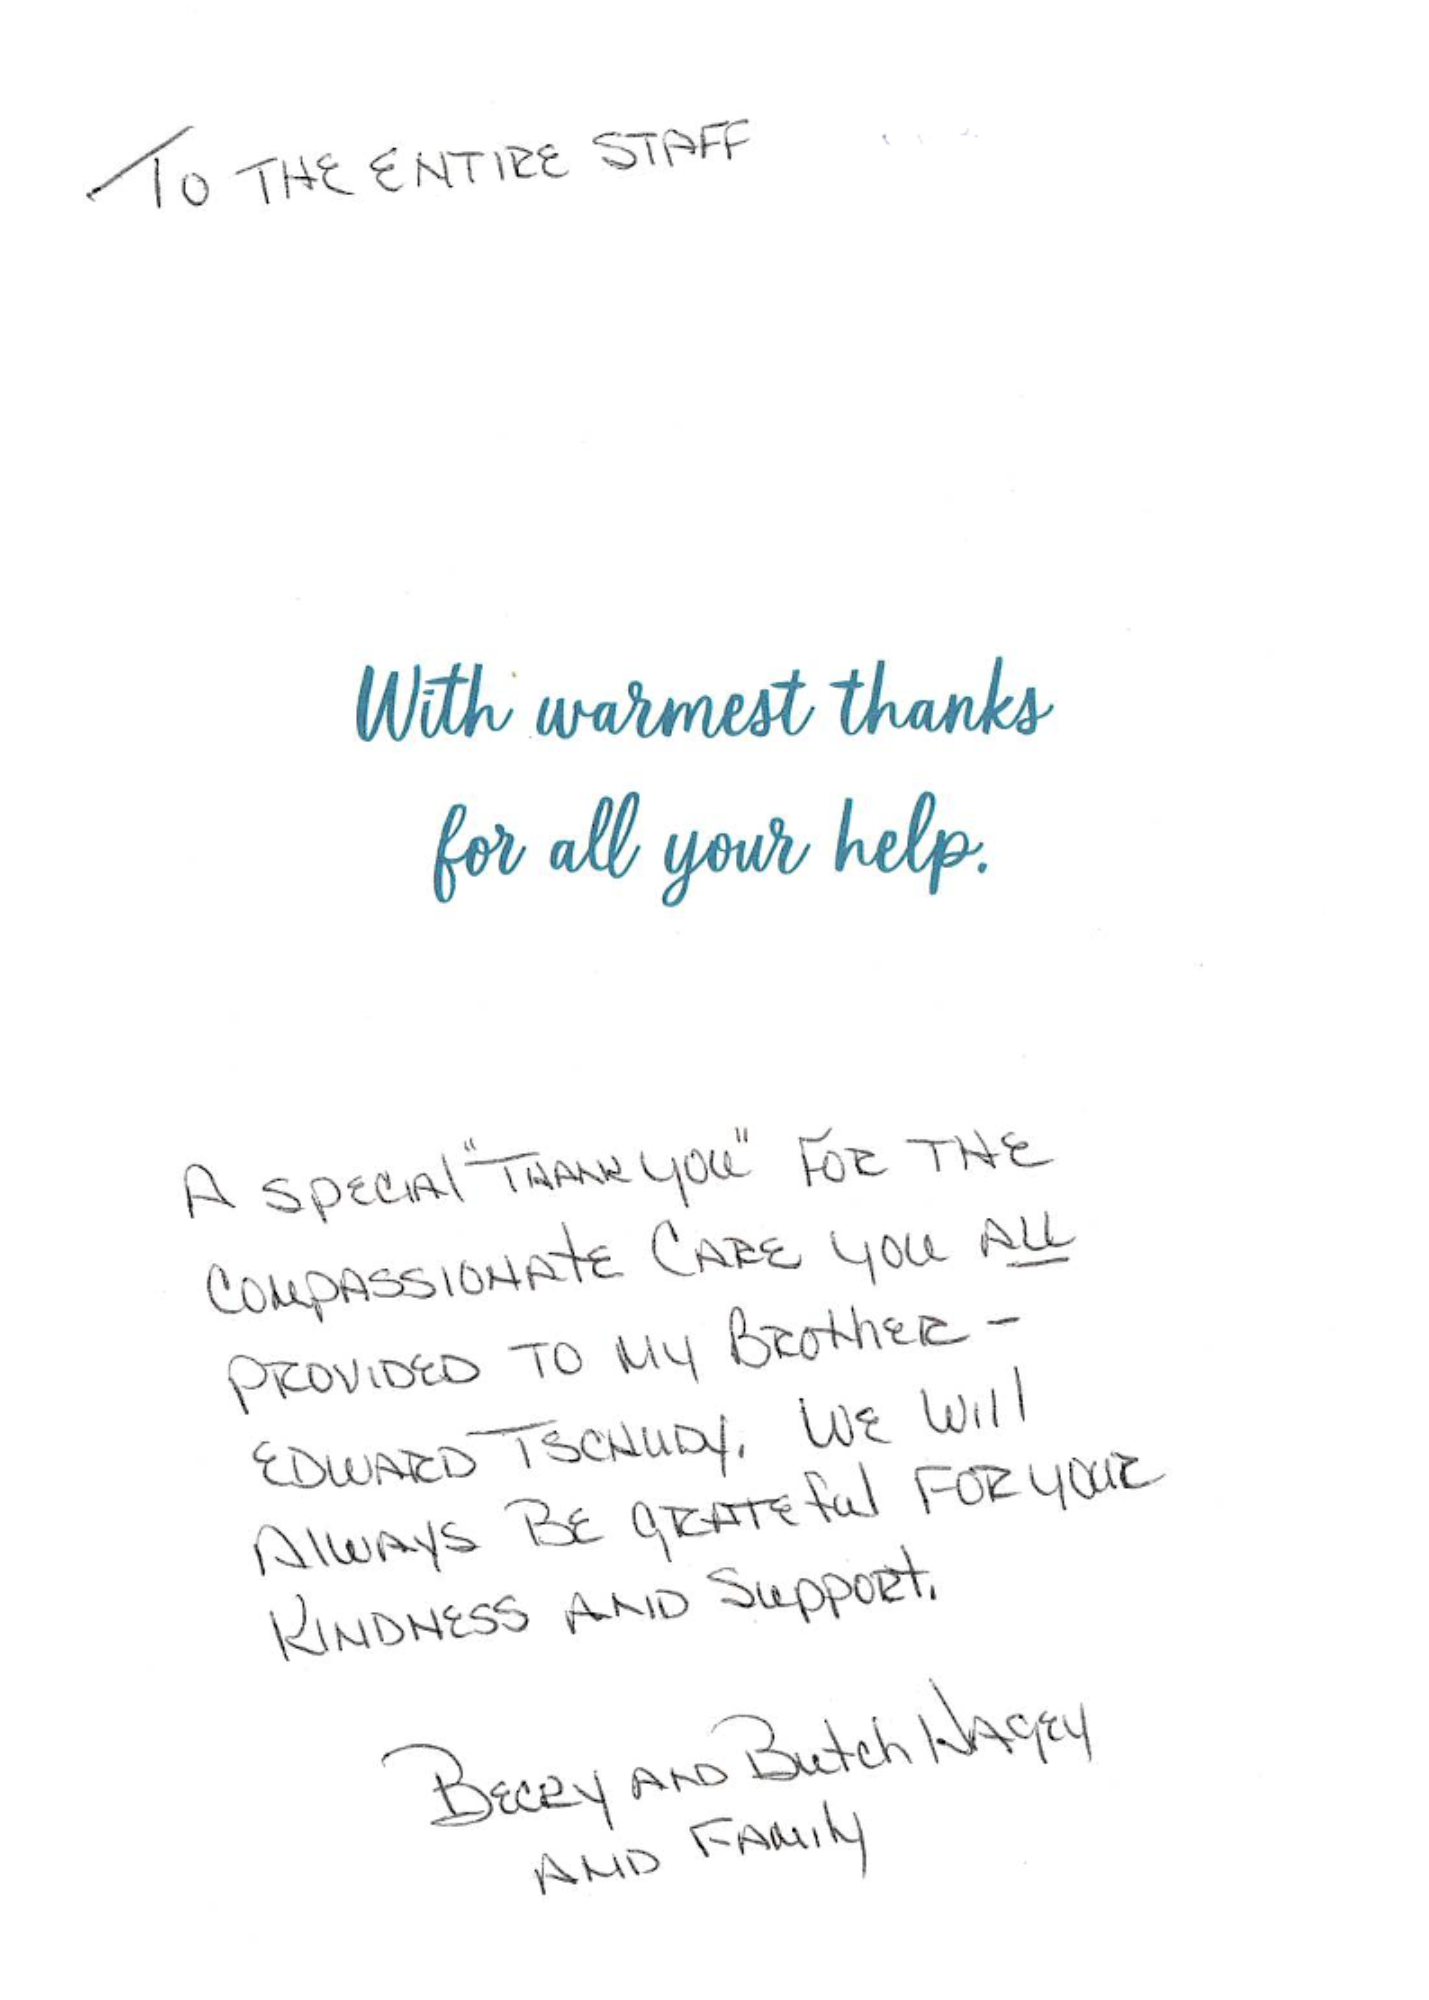 To THE ENTIRE STAFF
With warmest thanks
for all your help.
A SPECIAl "THANK YOU" FOR THE
COMPASSIONAtE CARE YOU All
PROVIDED TO MY BROthER -
EDWARD TSCHUDY. WE Will
AlWAYS BE gRATEful FOR YOUR
KINDNESS AND SuppORt.
BECKY AND Butch HAgEY
AND FAMIly